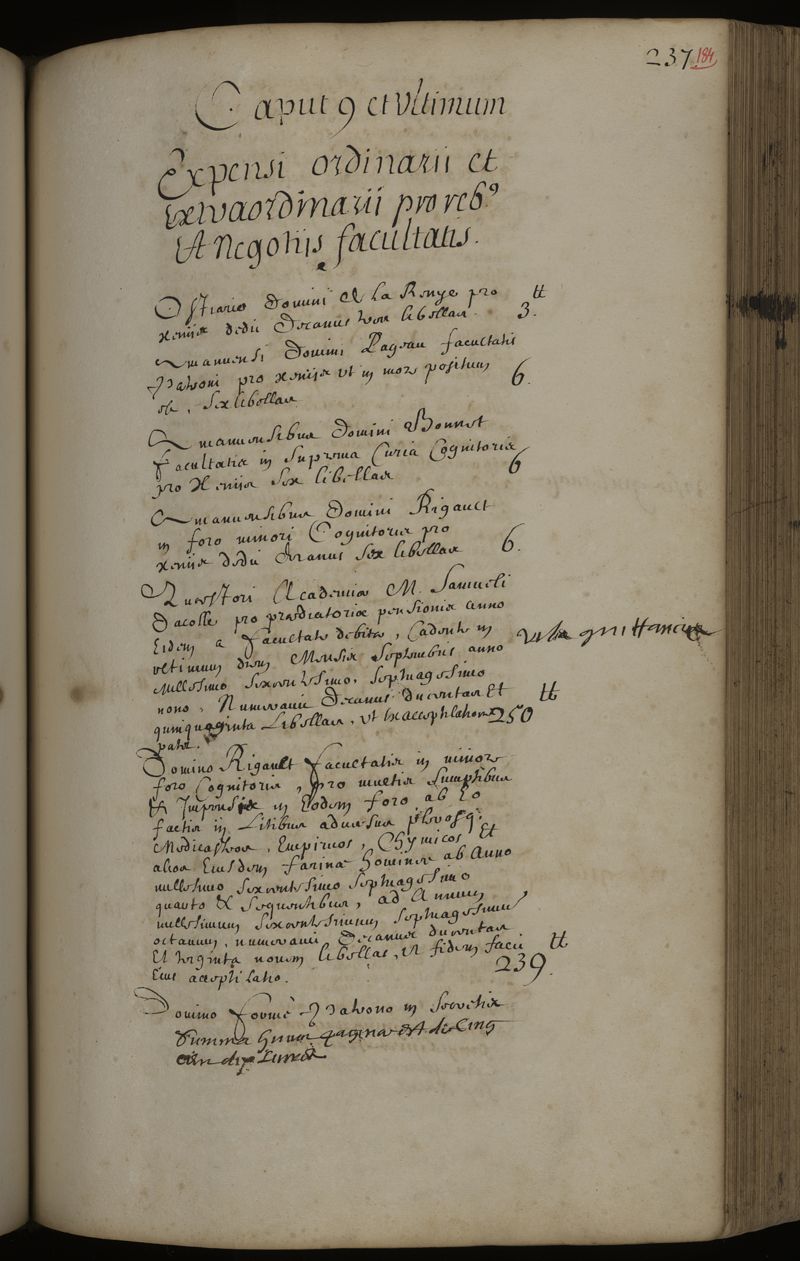 237. 184
Caput 9 et Ultimum
Expensi ordinarii et
extraordinarii pro reb9
et Negotiis facultatis.
Ostiario Domini De La Reynye pro tt
xeniis dedit Decanus tres libellas. 3.
Amanuensi Domini Pageau facultatis
Patroni pro xeniis ut in more positum 6.
est, sex libellas
Amanuensibus Domini Bonnet
facultatis in suprema Curia Cognitoris
pro Xeniis sex libellas 6
Amanuensibus Domini Rigault
in foro minori Cognitoris pro
xeniis dedit Decanus sex libellas 6.
Quaestori Academiae M. Samueli
Dacolle pro praediatoriae pensionis anno
Eidem a facultate debitae, Cadente in
ultimum diem Mensis septembris anno vide quittancias
Millesimo sexcentesimo, septuagesimo
nono, Numeravit Decanus ducentas Et tt
quinquaginta Libellas, ut ex acceptilatione 250
patet.
Domino Rigault facultatis in minore
foro Cognitoris, pro multis sumptibus
Et Impensis in Eodem foro, ab Eo
factis in Litibus adversus
Medicastros, Empiricos, Chymicos Et
alios Eiusdem farinae homines ab Anno
millesimo sexcentesimo septuagesimo
quarto & sequentibus, ad Annum
millesimum sexcentesimum septuagesimum
octavum, numeravit Decanus ducentas
Et triginta novem libellas, ut fidem facit tt
Eius acceptilatio. 239.
Domino patrono in
Summa paginae est de Cinq